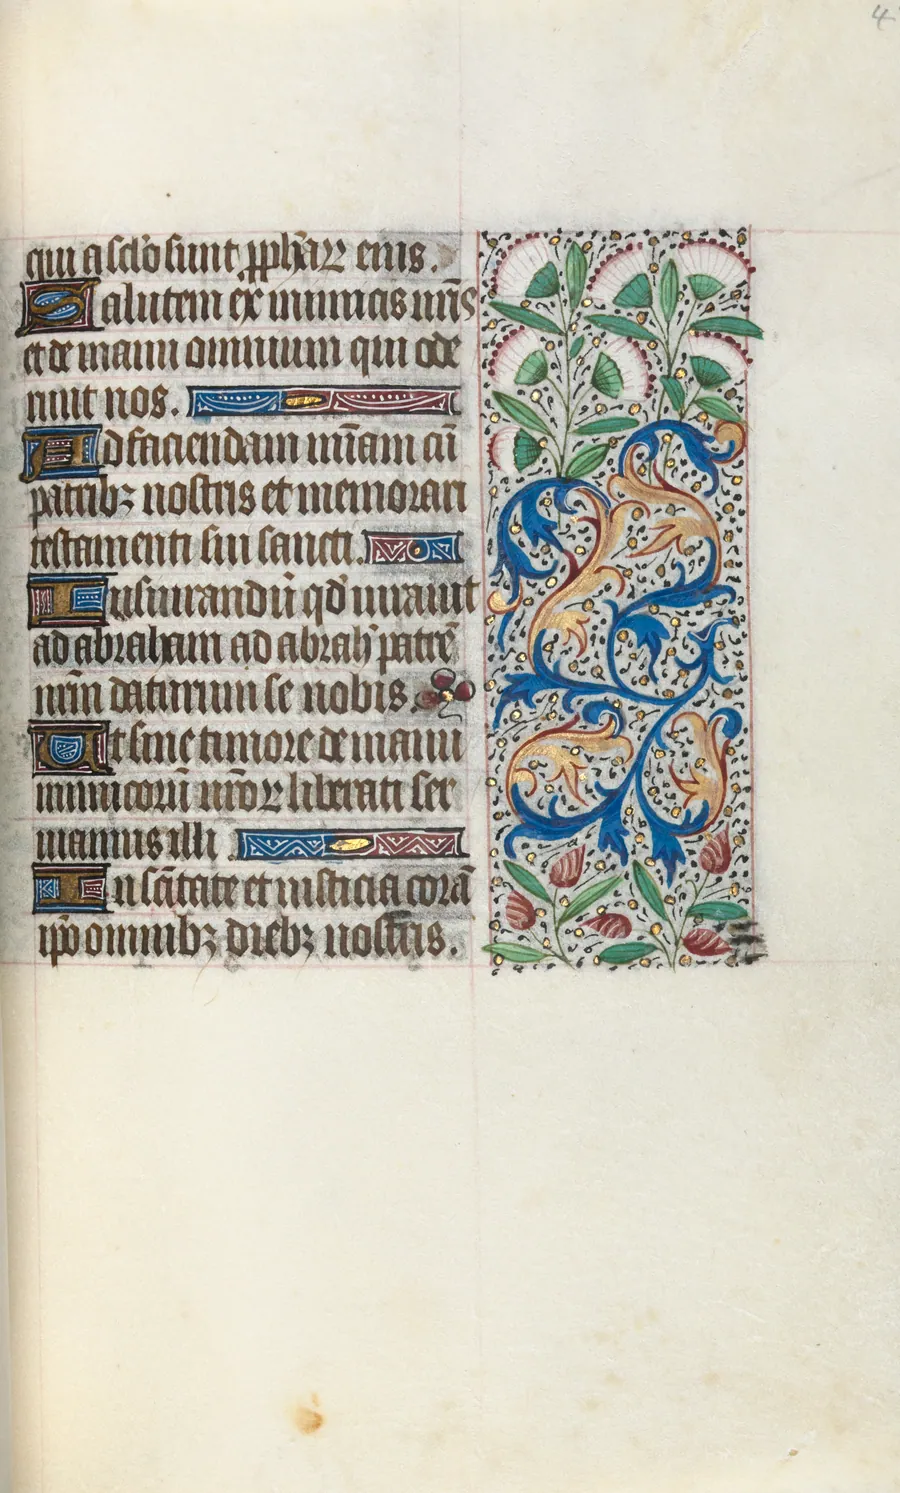 4
qui a sc̄lo sunt ꝓph̄aꝝ eius.
Salutem ex inimicis nr̄is
et de manu omnium qui ode
runt nos.
Ad faciendam mīam cū
patribꝫ nostris et memorari
testamenti sui sancti.
Iusiurandū qd̄ iurauit
ad abraham ad abrah' patrē
nr̄m daturum se nobis
Ut sine timore de manu
inimicorū nr̄oꝝ liberati ser
uiamus illi
In sc̄itate et iusticia corā
ip̄o omnibꝫ diebꝫ nostris.